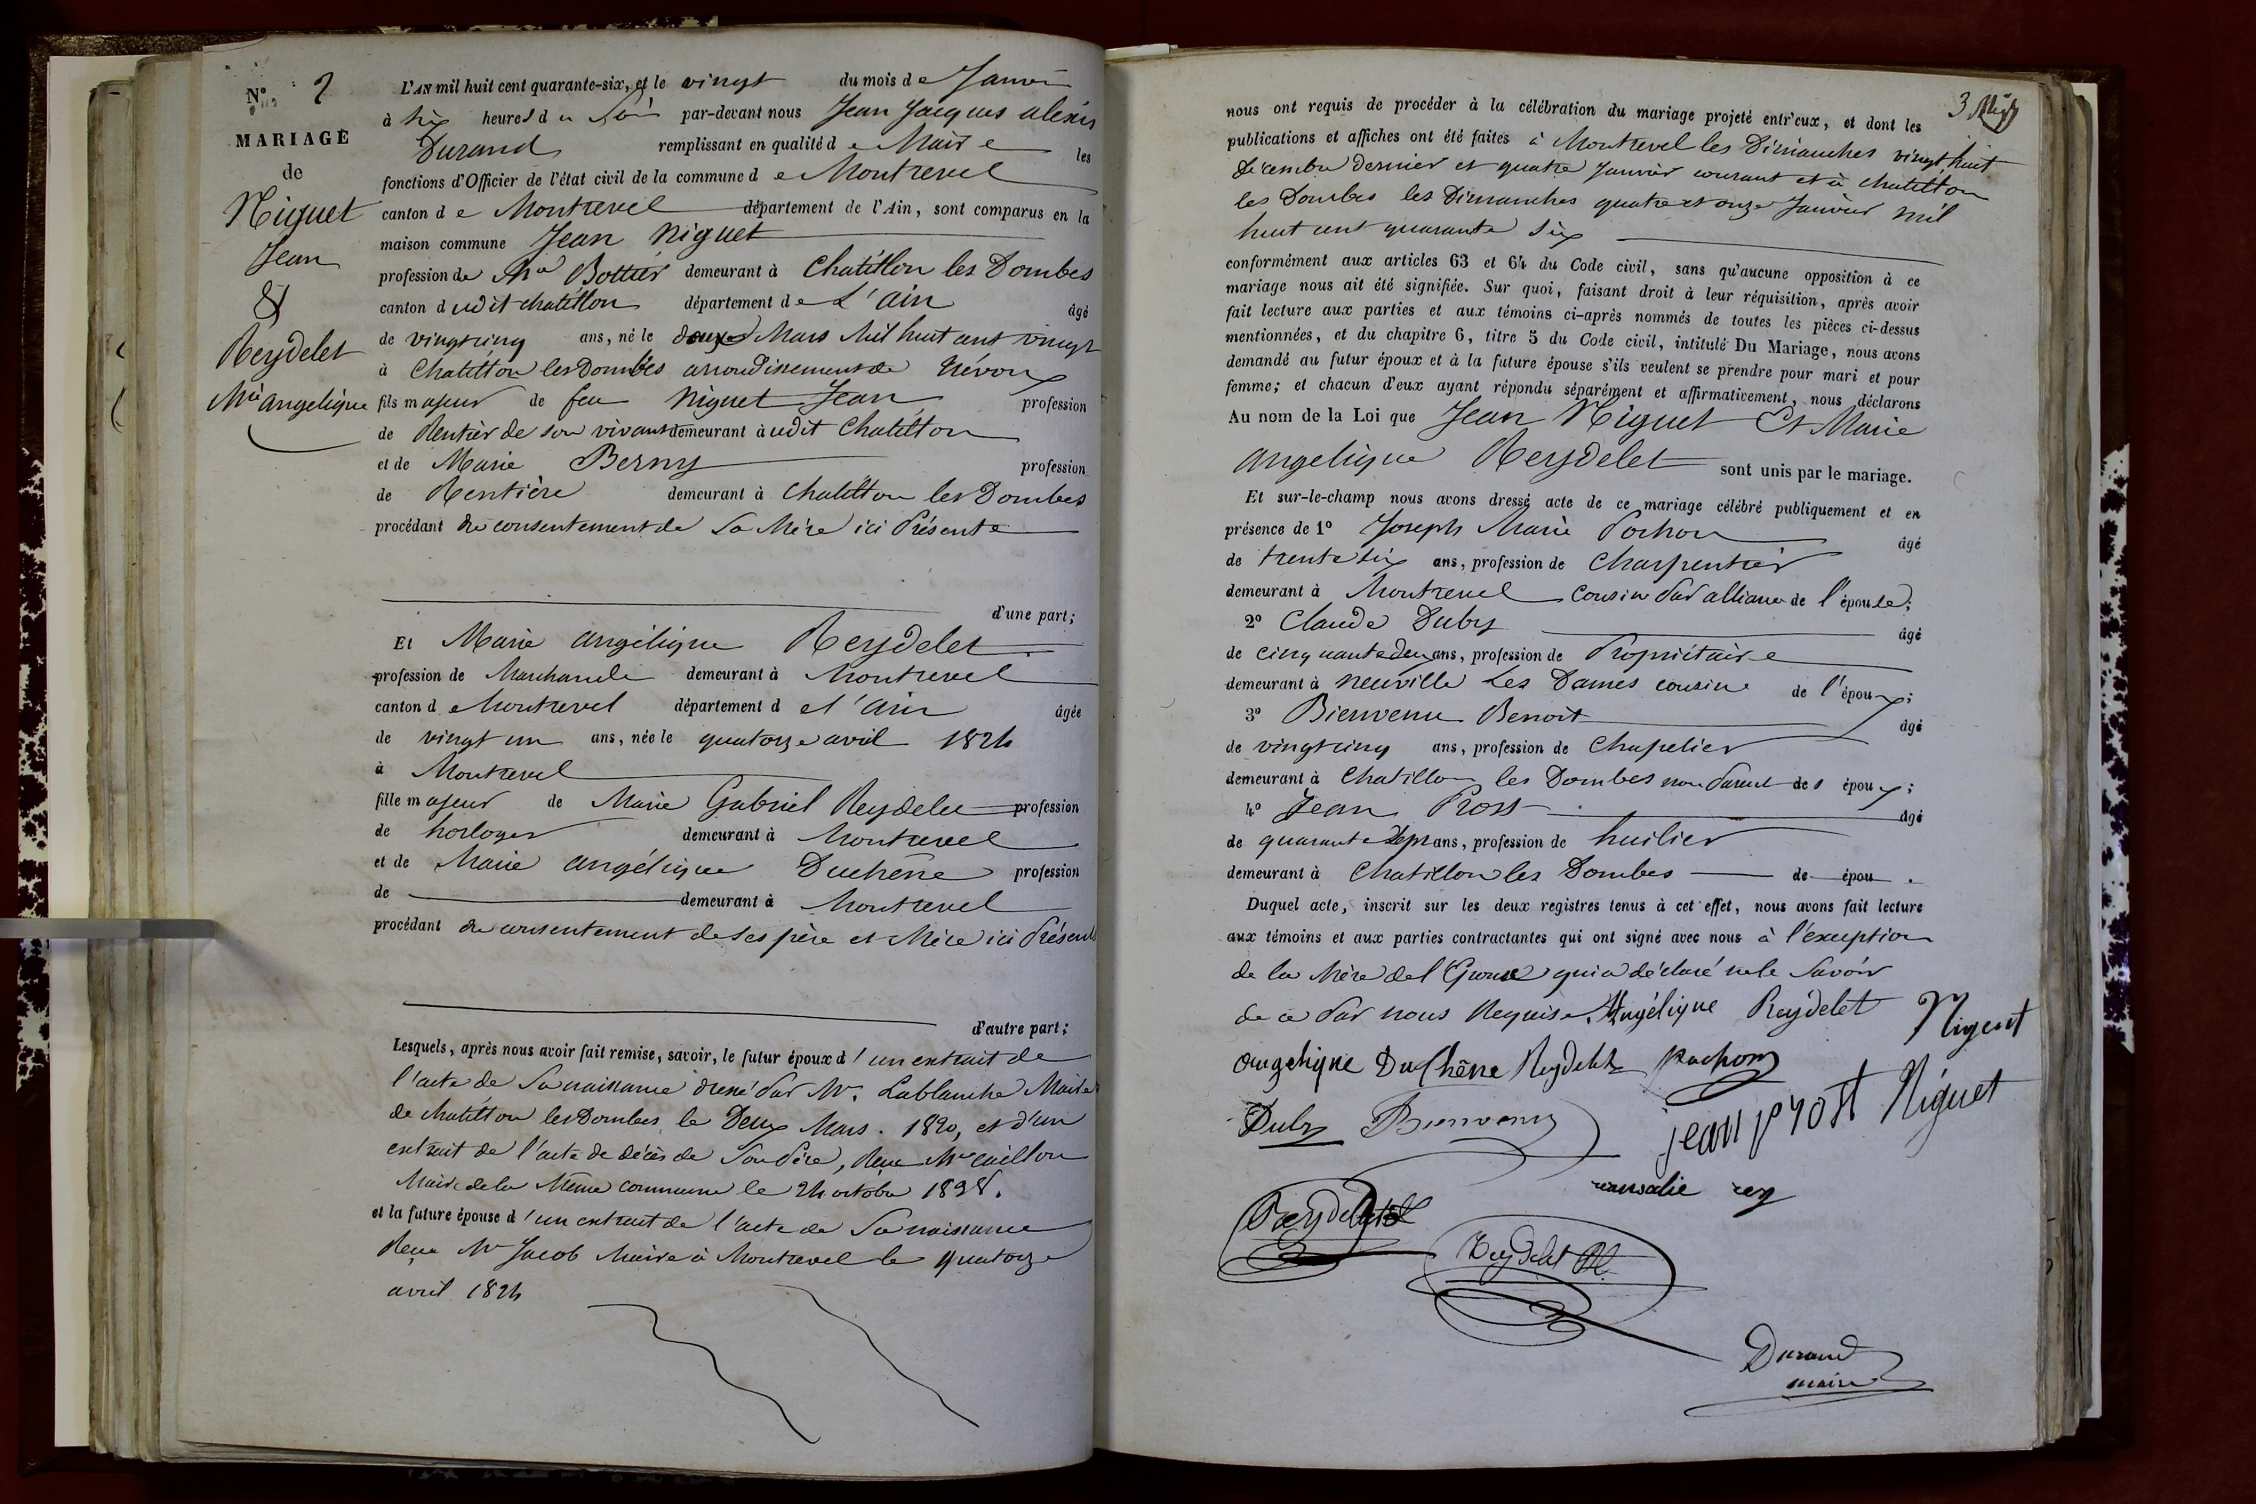 N° 2
MARIAGE
de
Niguet
Jean
&
Reydelet
Mie angelique
L'AN mil huit cent quarante-six, et le vingt du mois de Janvier
à six heures du Soir par-devant nous Jean Jacques alexis
Durand remplissant en qualité de Maire les
fonctions d'Officier de l'état civil de la commune de Montrevel
canton de Montrevel département de l'Ain, sont comparus en la
maison commune Jean Niguet
profession de Md Bottier demeurant à Chatillon les Dombes
canton dudit chatillon département de L'ain âgé
de vingt cinq ans, né le deux Mars Mil huit cent vingt
à Chatillon les Dombes arrondissement de Trévoux
fils majeur de feu Niguet Jean profession
de Rentier de son vivant demeurant audit Chatillon
et de Marie Berny profession
de Rentière demeurant à Chatillon les Dombes
procédant du consentement de Sa Mère ici Présente
d'une part;
Et Marie angélique Reydelet
profession de Marchande demeurant à Montrevel
canton de Montrevel département de l'ain âgée
de vingt un ans, née le quatorze avril 1824
à Montrevel
fille majeur de Marie Gabriel Reydelet profession
de horloger demeurant à Montrevel
et de Marie angélique Duchêne profession
de demeurant à Montrevel
procédant du consentement de Ses père et Mère ici Présents
d'autre part;
Lesquels, après nous avoir fait remise, savoir, le futur époux d'un extrait de
l'acte de Sa naissance dressé Par Mr. Lablanche Maire
de chatillon les Dombes le Deux Mars . 1820, et d'un
extrait de l'acte de décès de Son Père, Reçu Mr
Maire de la Même commune le 24 octobre 1838.
et la future épouse d'un extrait de l'acte de Sa naissance
Reçu Mr Jacob Maire à Montrevel le quatorze
avril 1824
3
nous ont requis de procéder à la célébration du mariage projeté entr'eux, et dont les
publications et affiches ont été faites à Montrevel les Dimanches vingt huit
Décembre dernier et quatre Janvier courant et à chatillon
les Dombes les Dimanches quatre et onze Janvier mil
huit cent quarante Six
conformément aux articles 63 et 64 du Code civil, sans qu'aucune opposition à ce
mariage nous ait été signifiée. Sur quoi, faisant droit à leur réquisition, après avoir
fait lecture aux parties et aux témoins ci-après nommés de toutes les pièces ci-dessus
mentionnées, et du chapitre 6, titre 5 du Code civil, intitulé Du Mariage, nous avons
demandé au futur époux et à la future épouse s'ils veulent se prendre pour mari et pour
femme; et chacun d'eux ayant répondu séparément et affirmativement, nous déclarons
Au nom de la Loi que Jean Niguet Et Marie
angelique Reydelet sont unis par le mariage.
Et sur-le-champ nous avons dressé acte de ce mariage célébré publiquement et en
présence de 1° Joseph Marie Pochon âgé
de trente six ans, profession de Charpentier
demeurant à Montrevel Cousin Par alliance de l'épouse;
2° Claude Duby âgé
de cinquante deux ans, profession de Propriétaire
demeurant à neuville Les Dames cousin de l'époux;
3° Bienvenu Benoit âgé
de vingt cinq ans, profession de Chapelier
demeurant à Chatillon les Dombes non Parent des époux;
4° Jean Prost âgé
de quarante Sept ans, profession de huilier
demeurant à Chatillon les Dombes de épou .
Duquel acte, inscrit sur les deux registres tenus à cet effet, nous avons fait lecture
aux témoins et aux parties contractantes qui ont signé avec nous à l'exception
de la Mère de l'Epoux qui a déclaré ne le Savoir
de ce Par nous Requise. Angélique Reydelet Niguet
angelique DuChêne Reydelet pochon
Duby Bienvenu jean prost Niguet
rey
Reydelet
Reydelet
Durand
maire